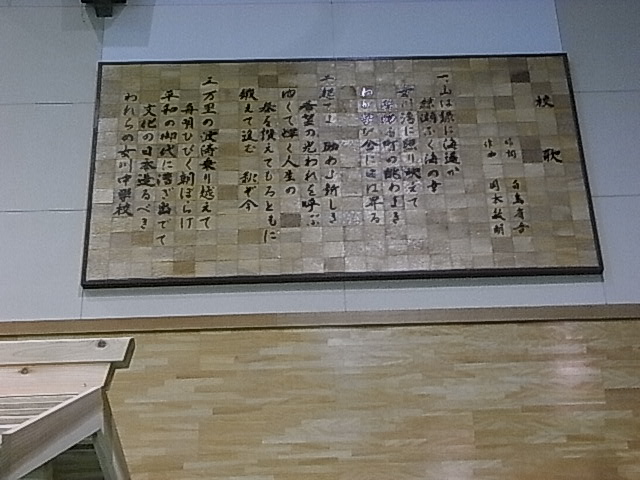 校 歌
作詞 白鳥省吾
作曲 岡本敏明
一、山は緑に海遥か
潮ふく海の幸
女川湾に照り映えて
町の眺めよき
わが学び舎に日は昇る
二、起てよ 励め 新しき
希望の光われを呼ぶ
強く輝く人生の
春を讃えてもろともに
鍛えて進む 我ぞ今
三、万里の波濤乗り越えて
舟唄ひびく朝ぼらけ
平和の御代に漕ぎ出でて
文化の日本造るべき
われらの女川中学校